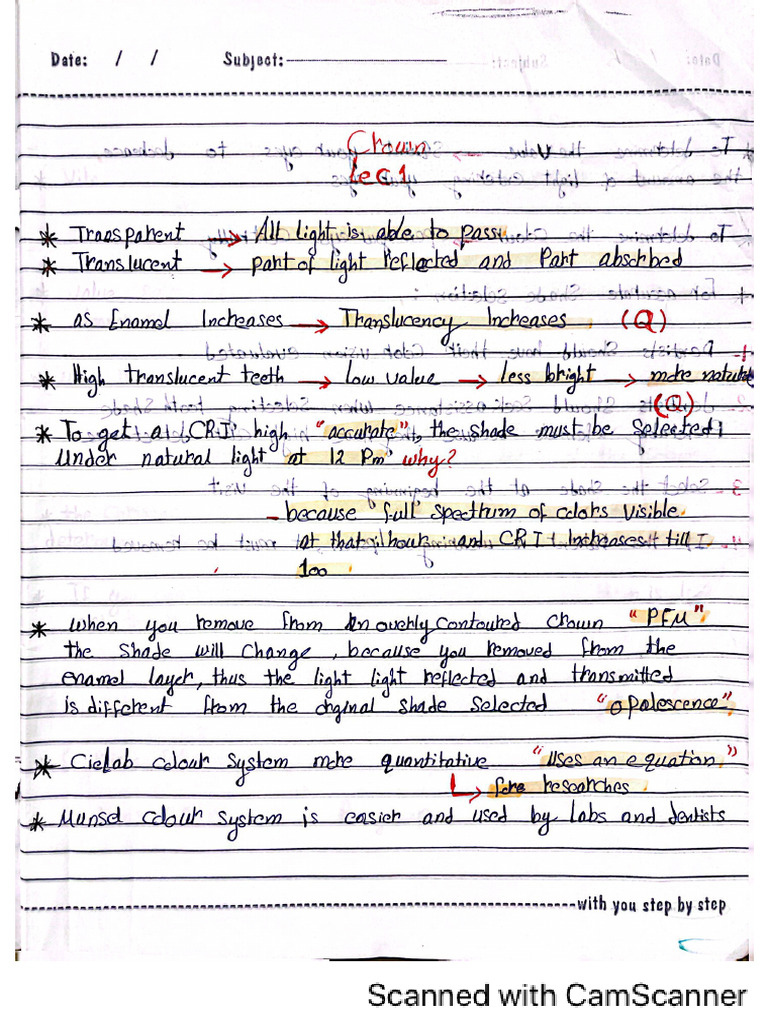 Date: / / Subject:
Crown
Lec 1
* Transparent → All light is able to pass
* Translucent → part of light reflected and Part absorbed
* as Enamel Increases → Translucency Increases (Q)
* High translucent teeth → low value → less bright → more nature
(Q)
* To get a CRI high "accurate", the shade must be Selected
Under natural light at 12 Pm why?
- because full spectrum of colors visible
at that hour and CRI Increases till
100
* when you remove from An overly contoured crown "PFM"
the shade will change, because you removed from the
enamel layer, thus the light light reflected and transmitted
is different from the original shade selected "opalescence"
* Cielab colour system more quantitative "Uses an equation"
↳ for researches
* Munsel colour system is easier and used by labs and dentists
with you step by step
Scanned with CamScanner